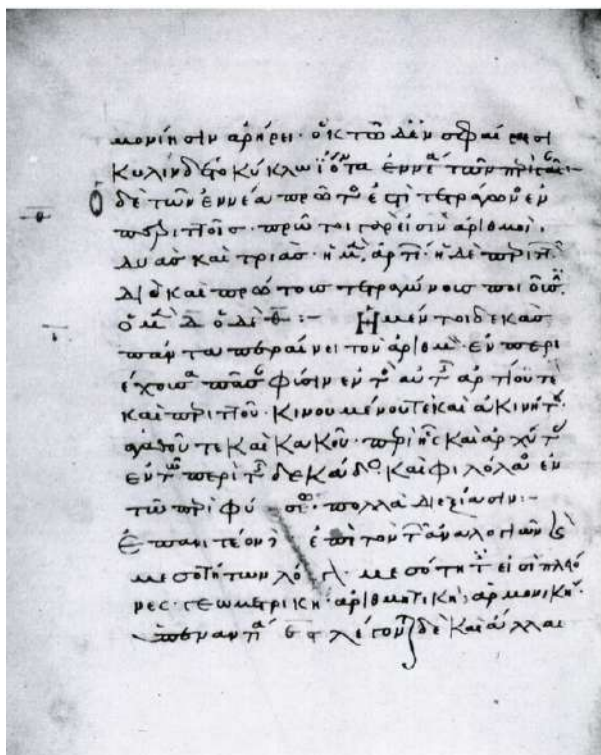 μονίησιν ἀρήρει· ὀκτὼ δὴ ἐν σφαίρησι
κυλίνδετο κύκλωι ἰόντα ἐννεα τῶν περὶ γαῖ:-
θ ὁ δὲ τῶν ἐννέα πρῶτος ἐστὶ τετράγωνος ἐν
περιττοῖς· πρῶτοι γάρ εἰσιν ἀριθμοὶ,
δυὰς καὶ τριάς· ἡ μὲν, ἀρτί· ἡ δὲ περιττ
διὸ καὶ πρώτους τετραγώνους ποιοῦσιν
ι ὁ μὲν δ ὁ δὲ θ:- Ἡ μέντοι δεκὰς
πάντα περαίνει τὸν ἀριθμὸν· ἐνπερι
έχουσα πᾶσαν φύσιν ἐντὸς αὐτῆς ἀρτίου τε
καὶ περιττοῦ· κινουμένου τε καὶ ἀκινήτου·
ἀγαθοῦ τε καὶ κακοῦ· περὶ ἧς καὶ ἀρχύτας
ἐν τῶ περὶ τῆς δεκάδος καὶ φιλόλαος ἐν
τῶ περὶ φύσιος· πολλὰ διεξίασιν:-
Ἐπανιτέον ἐπὶ τὸν τῶν ἀναλογιῶν καὶ
μεσοτήτων λόγον· μεσότητες εἰσὶ πλείο
νες· γεωμετρικὴ· ἀριθμητικὴ, ἁρμονικὴ·
ὑπεναντία ε ϛ λέγονται δὲ καὶ ἄλλαι